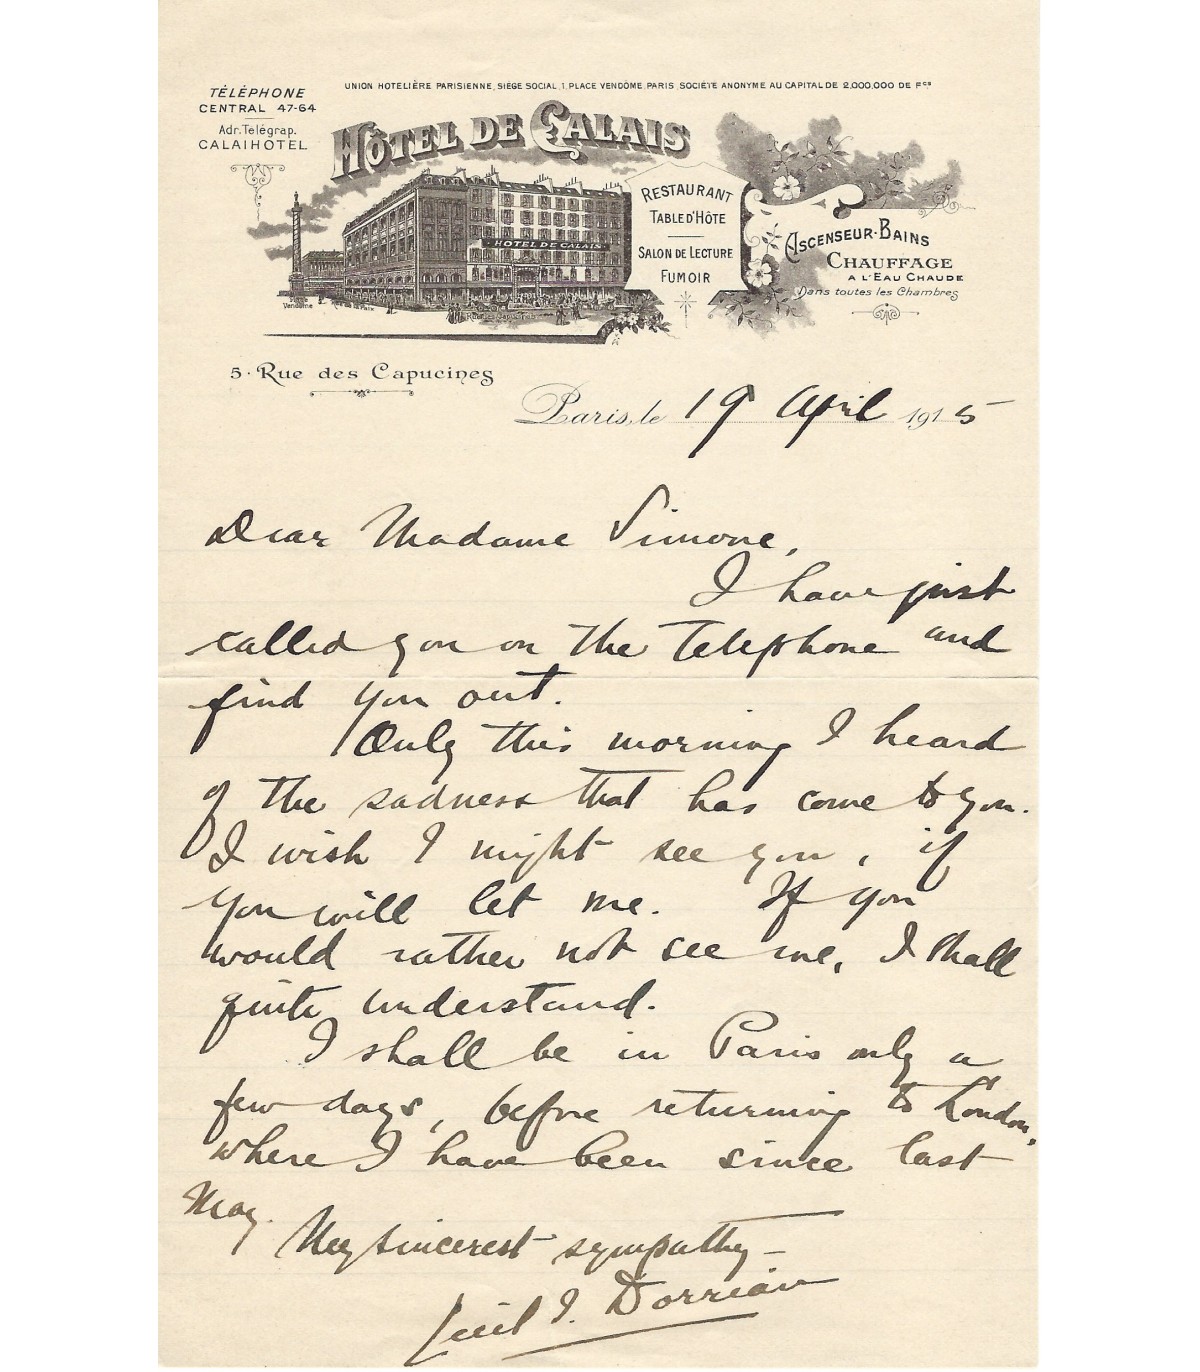 UNION HOTELIÈRE PARISIENNE, SIÈGE SOCIAL, 1, PLACE VENDÔME, PARIS, SOCIÉTÉ ANONYME AU CAPITAL DE 2,000,000 DE Fcs
TÉLÉPHONE
CENTRAL 47-64
Adr. Telégrap.
CALAIHOTEL
HÔTEL DE CALAIS
HOTEL DE CALAIS
RESTAURANT
TABLE D'HÔTE
SALON DE LECTURE
FUMOIR
ASCENSEUR-BAINS
CHAUFFAGE
A L'EAU CHAUDE
Dans toutes les Chambres
Place
Vendôme
Rue de la Paix
Rue des Capucines
5 · Rue des Capucines
Paris, le 19 April 1915
Dear Madame Simone,
I have just
called you on the telephone and
find you out.
Only this morning I heard
of the sadness that has come to you.
I wish I might see you, if
you will let me. If you
would rather not see me, I shall
quite understand.
I shall be in Paris only a
few days, before returning to London,
where I have been since last
May.
My sincerest sympathy —
Cecil I. Dorrian